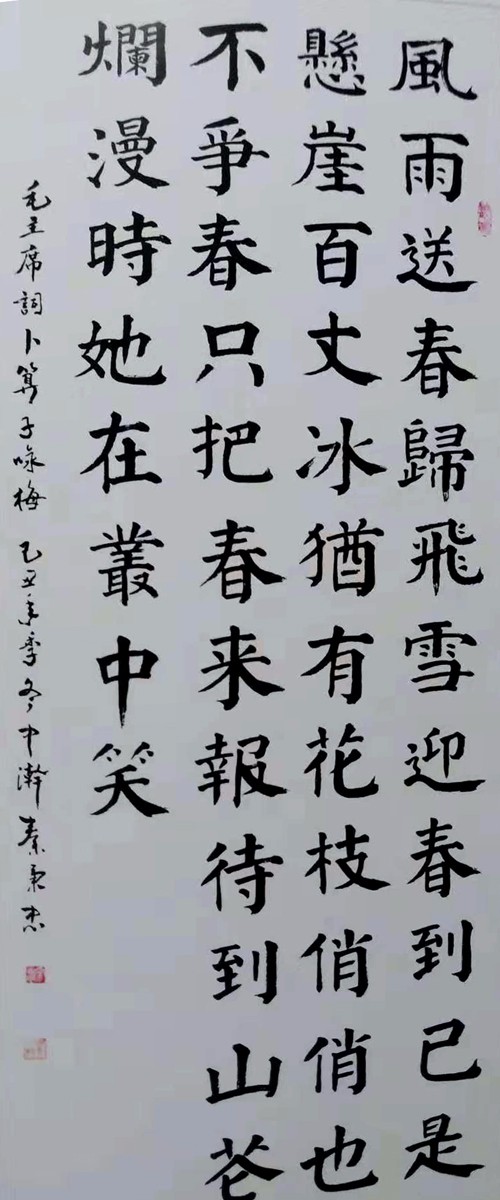 風雨送春歸飛雪迎春到已是
懸崖百丈冰猶有花枝俏俏也
不爭春只把春来報待到山花
爛漫時她在叢中笑
毛主席詞卜算子咏梅 乙丑年季冬中澣秦秉忠